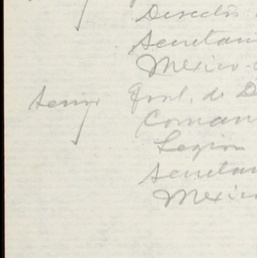 Director
Secretar
Mexico
Gral. de D
Coman
Legion
Secretar
Mexico